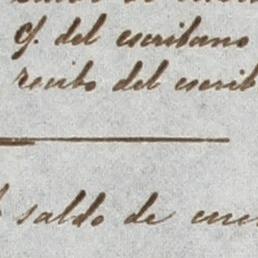 del escribano
recibo del escrib
saldo de cue